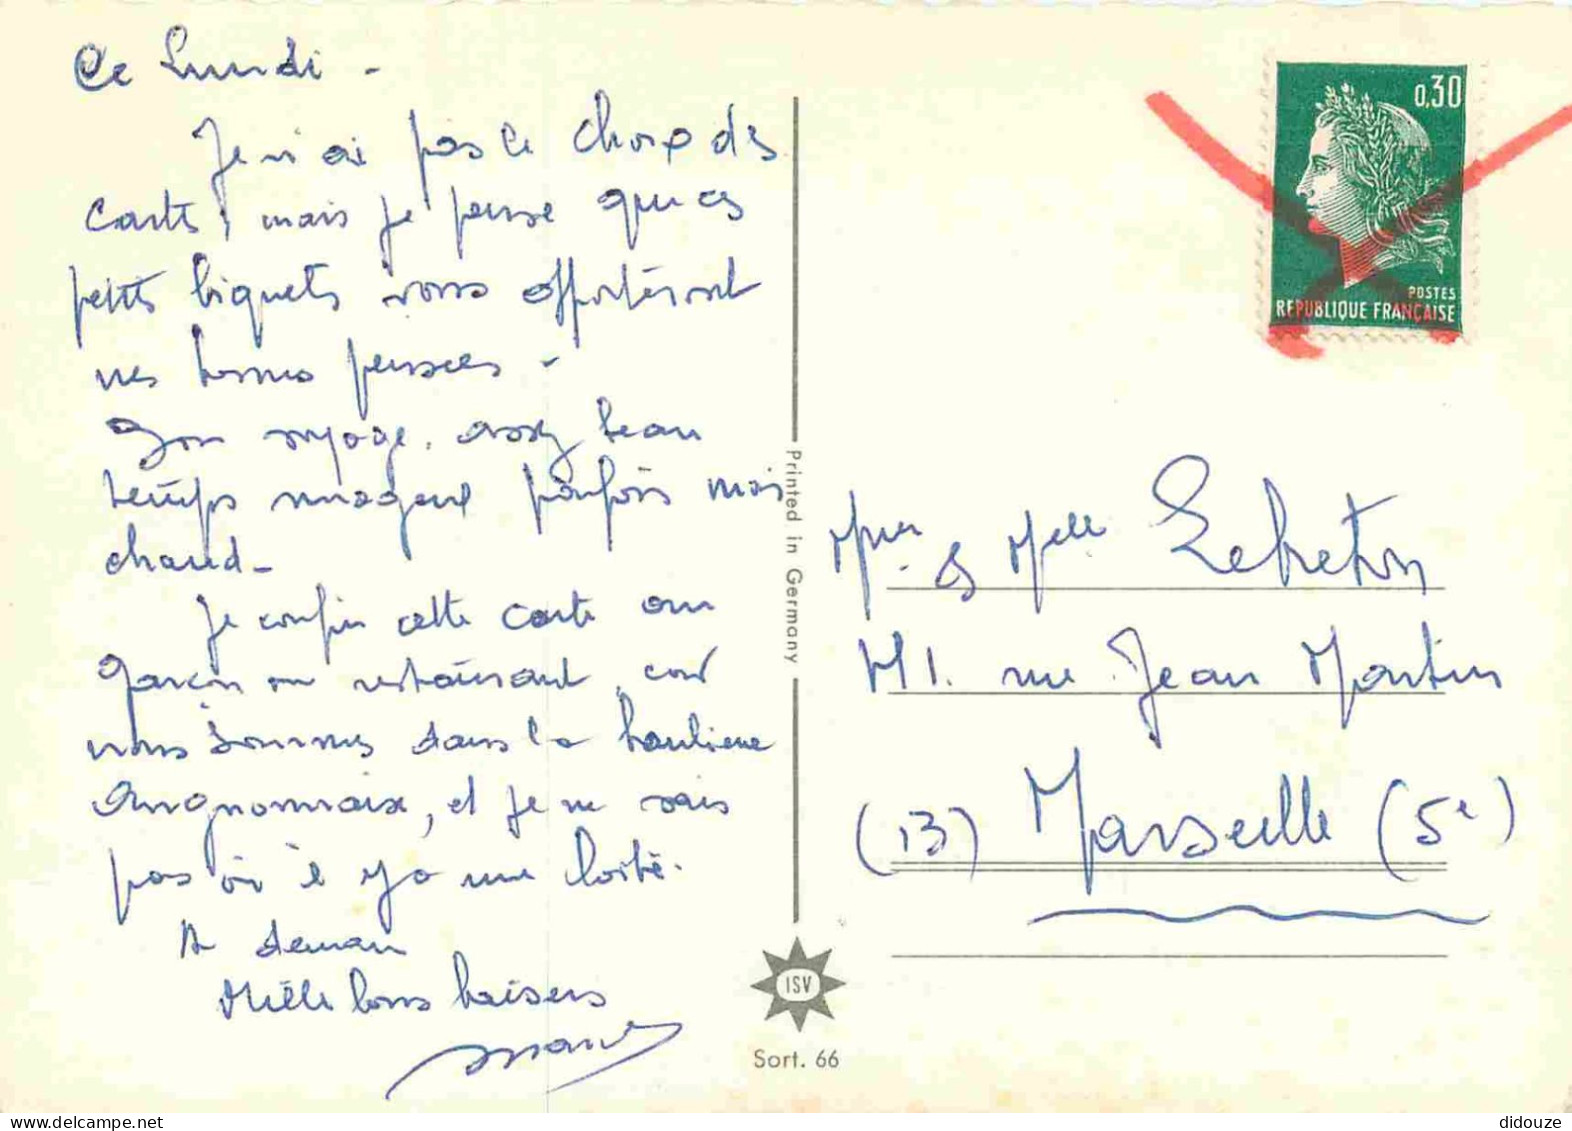 Ce Lundi -
Je n'ai pas le choix des
cartes, mais je pense que ces
petits biquets vous apporteront
mes bonnes pensées -
Bon voyage, assez beau
temps nuageux parfois mais
chaud -
Je confie cette carte au
garçon du restaurant, car
nous sommes dans la banlieue
Avignonnaise, et je ne sais
pas où il y a une boîte.
A demain
Mille bons baisers
0,30
POSTES
REPUBLIQUE FRANÇAISE
Printed in Germany
Mme & Melle Lebreton
111. rue Jean Martin
(13) Marseille (5e)
ISV
Sort. 66
didouze